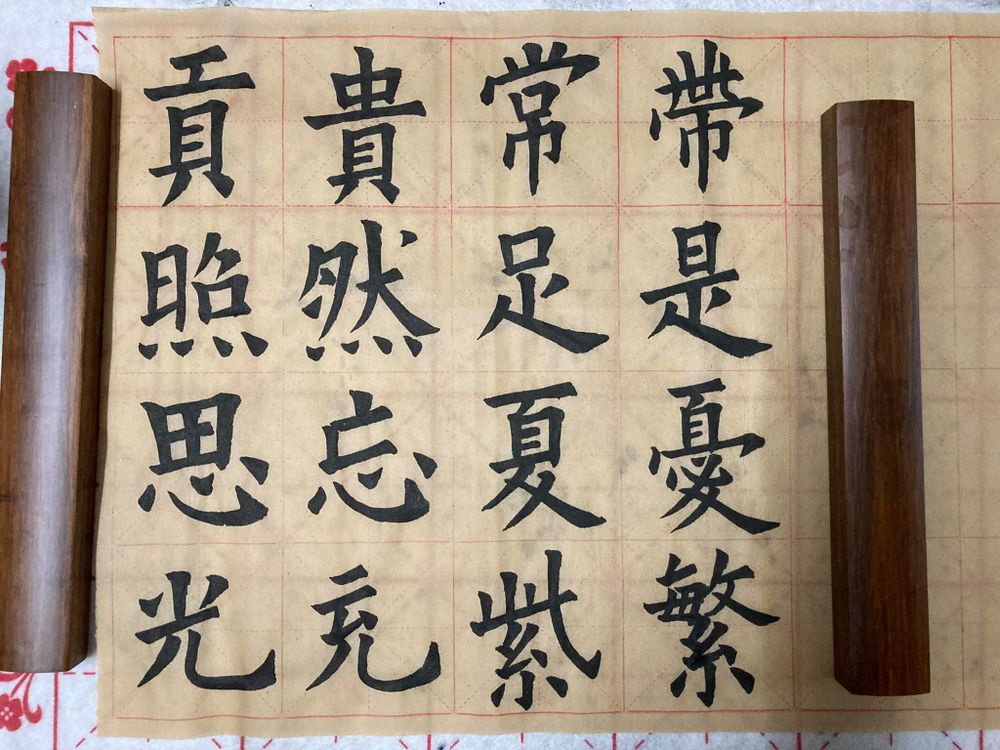 貢貴常帶
照然足是
思忘夏憂
光充紫繁